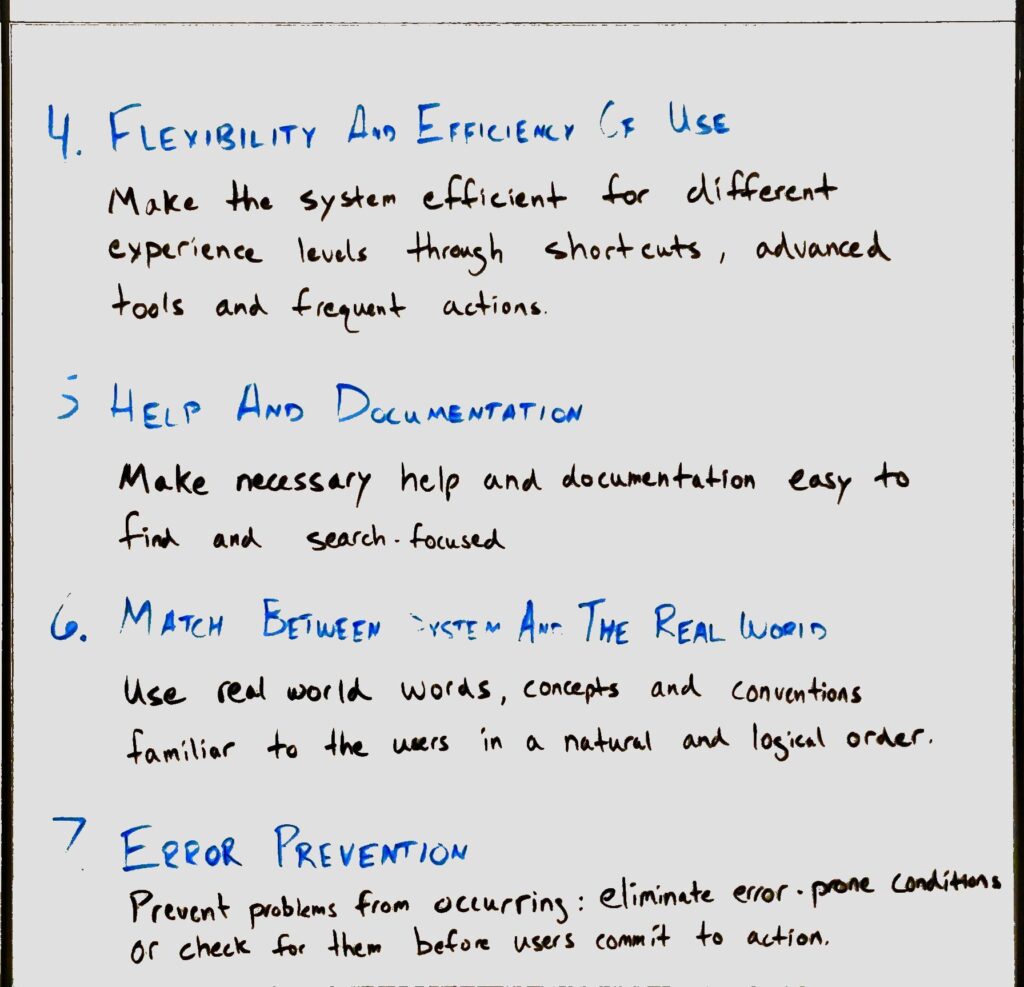 4. FLEXIBILITY AND EFFICIENCY OF USE
Make the system efficient for different
experience levels through shortcuts, advanced
tools and frequent actions.
5 HELP AND DOCUMENTATION
Make necessary help and documentation easy to
find and search-focused
6. MATCH BETWEEN SYSTEM AND THE REAL WORLD
Use real world words, concepts and conventions
familiar to the users in a natural and logical order.
7 ERROR PREVENTION
Prevent problems from occurring: eliminate error-prone conditions
or check for them before users commit to action.